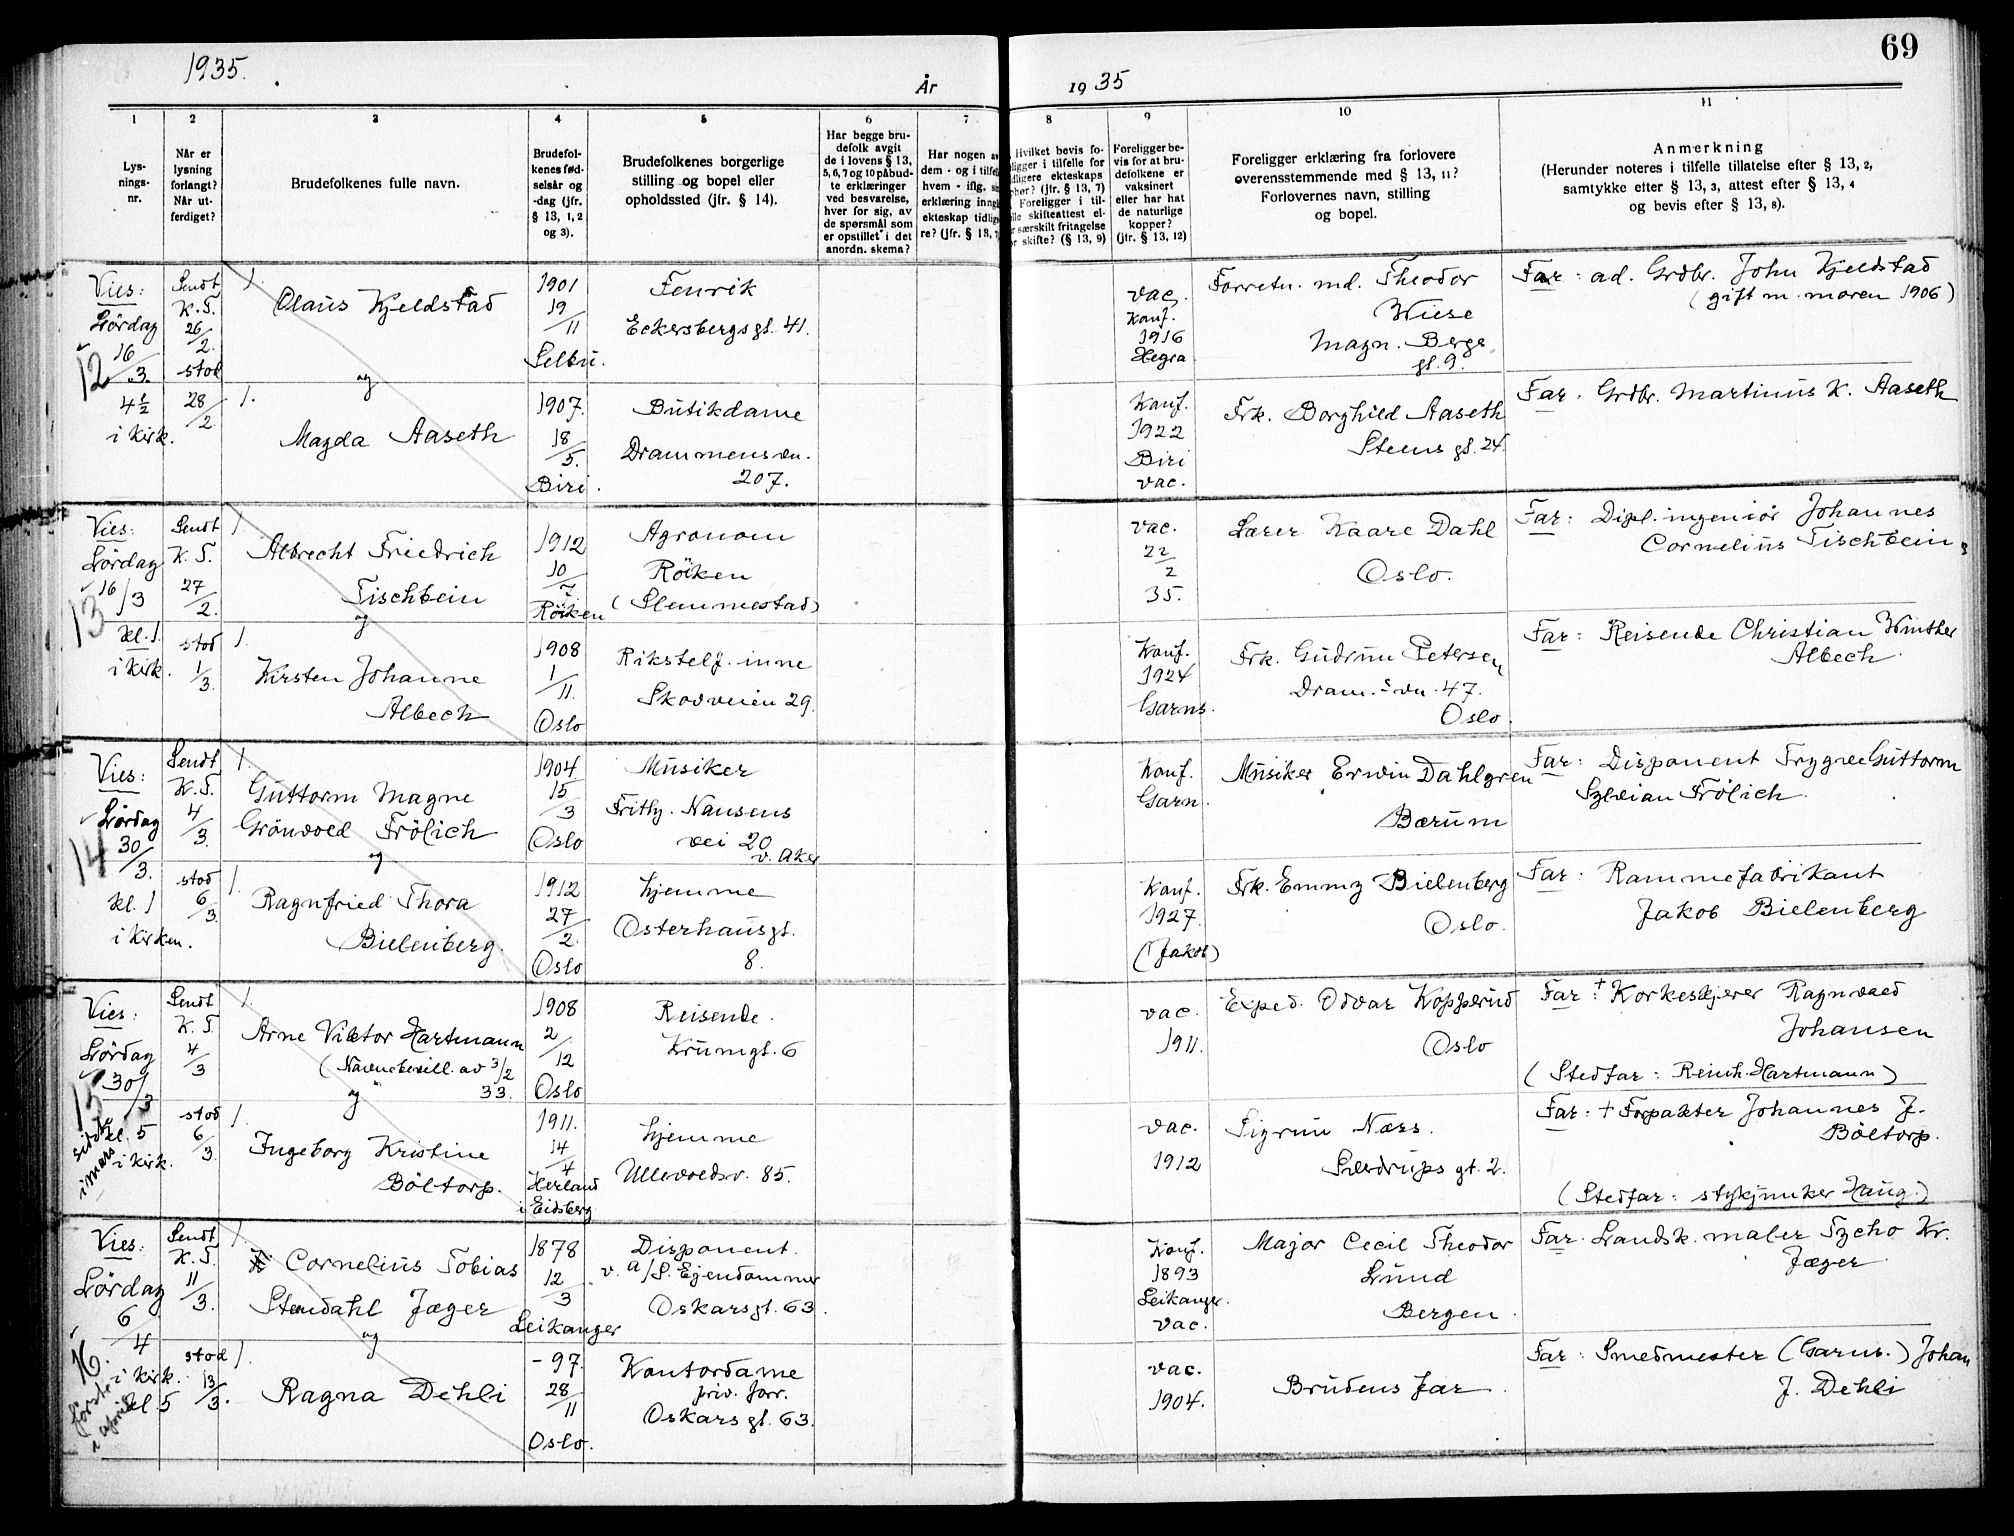 1935.
År
19 35
69
1
Lys-
nings-
nr.
2
Når er
lysning
forlangt?
Når ut-
ferdiget?
3
Brudefolkenes fulle navn.
4
Brudefol-
kenes fød-
selsår og
-dag (jfr.
§ 13, 1, 2
og 3).
5
Brudefolkenes borgerlige
stilling og bopel eller
opholdssted (jfr. § 14).
6
Har begge bru-
defolk avgit
de i lovens § 13,
5, 6, 7 og 10 påbud-
te erklæringer
ved besvarelse,
hver for sig, av
de spørsmål som
er opstillet i det
anordn. skema?
7
Har nogen av
dem - og i tilfelle
hvem - iflg.
erklæring inng
ekteskap tidlig
re? (jfr. § 13, 7
8
Hvilket bevis fo-
religger i tilfelle for
tidligere ekteskaps
ophør? (jfr. § 13, 7)
Foreligger i til-
felle skifteattest el-
ler særskilt fritagelse
for skifte? (§ 13, 9)
9
Foreligger be-
vis for at bru-
defolkene er
vaksinert
eller har hat
de naturlige
kopper?
(jfr. § 13, 12)
10
Foreligger erklæring fra forlovere
overensstemmende med § 13, 11?
Forlovernes navn, stilling
og bopel.
11
Anmerkning
(Herunder noteres i tilfelle tillatelse efter § 13, 2,
samtykke efter § 13, 3, attest efter § 13, 4
og bevis efter § 13, 8).
12
Vies:
Lördag
16/3.
4½
i kirk.
Sendt
K. T.
26/2.
stod
28/2
1.
Olaus Kjeldstad
og
1901
19/11
Selbu.
Fenrik
Eckersbergsgt. 41.
vac.
Konf.
1916
Hegra
Forretn. md. Theodor
Wiese
Magn. Bergs
gt. 9.
Far: ad. Grdbr. John Kjeldstad
(gift m. moren 1906)
1.
Magda Aaseth
1907.
18/5.
Biri.
Butikdame
Drammensvn.
207.
Konf.
1922
Biri
vac.
Frk. Borghild Aaseth
Stens gt. 24.
Far. Grdbr. Martinus K. Aaseth
13
Vies:
Lördag
16/3
kl. 1.
i kirk.
Sendt
K. T.
27/2.
stod
1/3.
1.
Albrecht Friedrich
Tischbein
og
1912
10/7
Röiken
Agronom
Röiken
(Slemmestad)
vac.
22/2
35.
Lærer Kaare Dahl
Oslo.
Far: Dipl. ingeniör Johannes
Cornelius Tischbein
1.
Kirsten Johanne
Albech
1908
1/11.
Oslo
Rikstelf. inne
Skovveien 29.
Konf.
1924
Garns.
Frk. Gudrun Petersen
Dram.s vn. 47.
Oslo.
Far: Reisende Christian Winther
Albech
14
Vies:
Lördag
30/3.
kl. 1
i kirken.
Sendt
K. T.
4/3.
stod
6/3.
1.
Guttorm Magne
Grönvold Frölich
og
1904
15/3
Oslo
Musiker
Frithj. Nansens
vei 20
v. Aker
Konf.
Garn.
Musiker Erwin Dahlgren
Bærum
Far: Disponent Trygve Guttorm
Sylvian Frölich.
1.
Ragnfried Thora
Bielenberg.
1912
27/2.
Oslo
hjemme
Osterhausgt.
8.
Konf.
1927.
(Jakob)
Frk. Emmy Bielenberg
Oslo.
Far: Rammefabrikant
Jakob Bielenberg
15
Vies:
Lördag
30/3
kl. 5
i kirk.
siste
i mars
Sendt
K. T.
4/3
stod
6/3.
1.
Arne Viktor Hartmann
(Navnebevill. av 3/2
33.
og
1908
2/12
Oslo
Reisende.
Krumgt. 6
vac.
1911.
Exped. Odvar Kopperud
Oslo
Far: † Korkeskjerer Ragnvald
Johansen
(Stedfar: Reinh. Hartmann)
1.
Ingeborg Kristine
Böltorp.
1911.
14/4
Herland
i Eidsberg
hjemme
Ullevoldsv. 85.
vac.
1912
Sigrun Næss.
Sverdrups gt. 2.
Far: † Forpakter Johannes J.
Böltorp.
(Stedfar: stykjunker Haug.)
16.
Vies:
Lördag
6/4
i kirk.
kl. 5
förste
i april
Sendt
K. T.
11/3.
stod
13/3.
1.
Cornelius Tobias
Stendahl Jæger
og
1878
12/3
Leikanger
Disponent.
v. A/S. Ejendommer
Oskarsgt. 63.
Konf.
1893
Leikanger.
vac.
Major Cecil Theodor
Lund
Bergen.
Far. Landsk. maler Tycho Kr.
Jæger.
1.
Ragna Dehli
- 97.
28/11
Oslo.
Kontordame
priv. forr.
Oskars gt. 63.
vac.
1904.
Brudens far.
Far: Smedmester (Garns.) Johan
J. Dehli